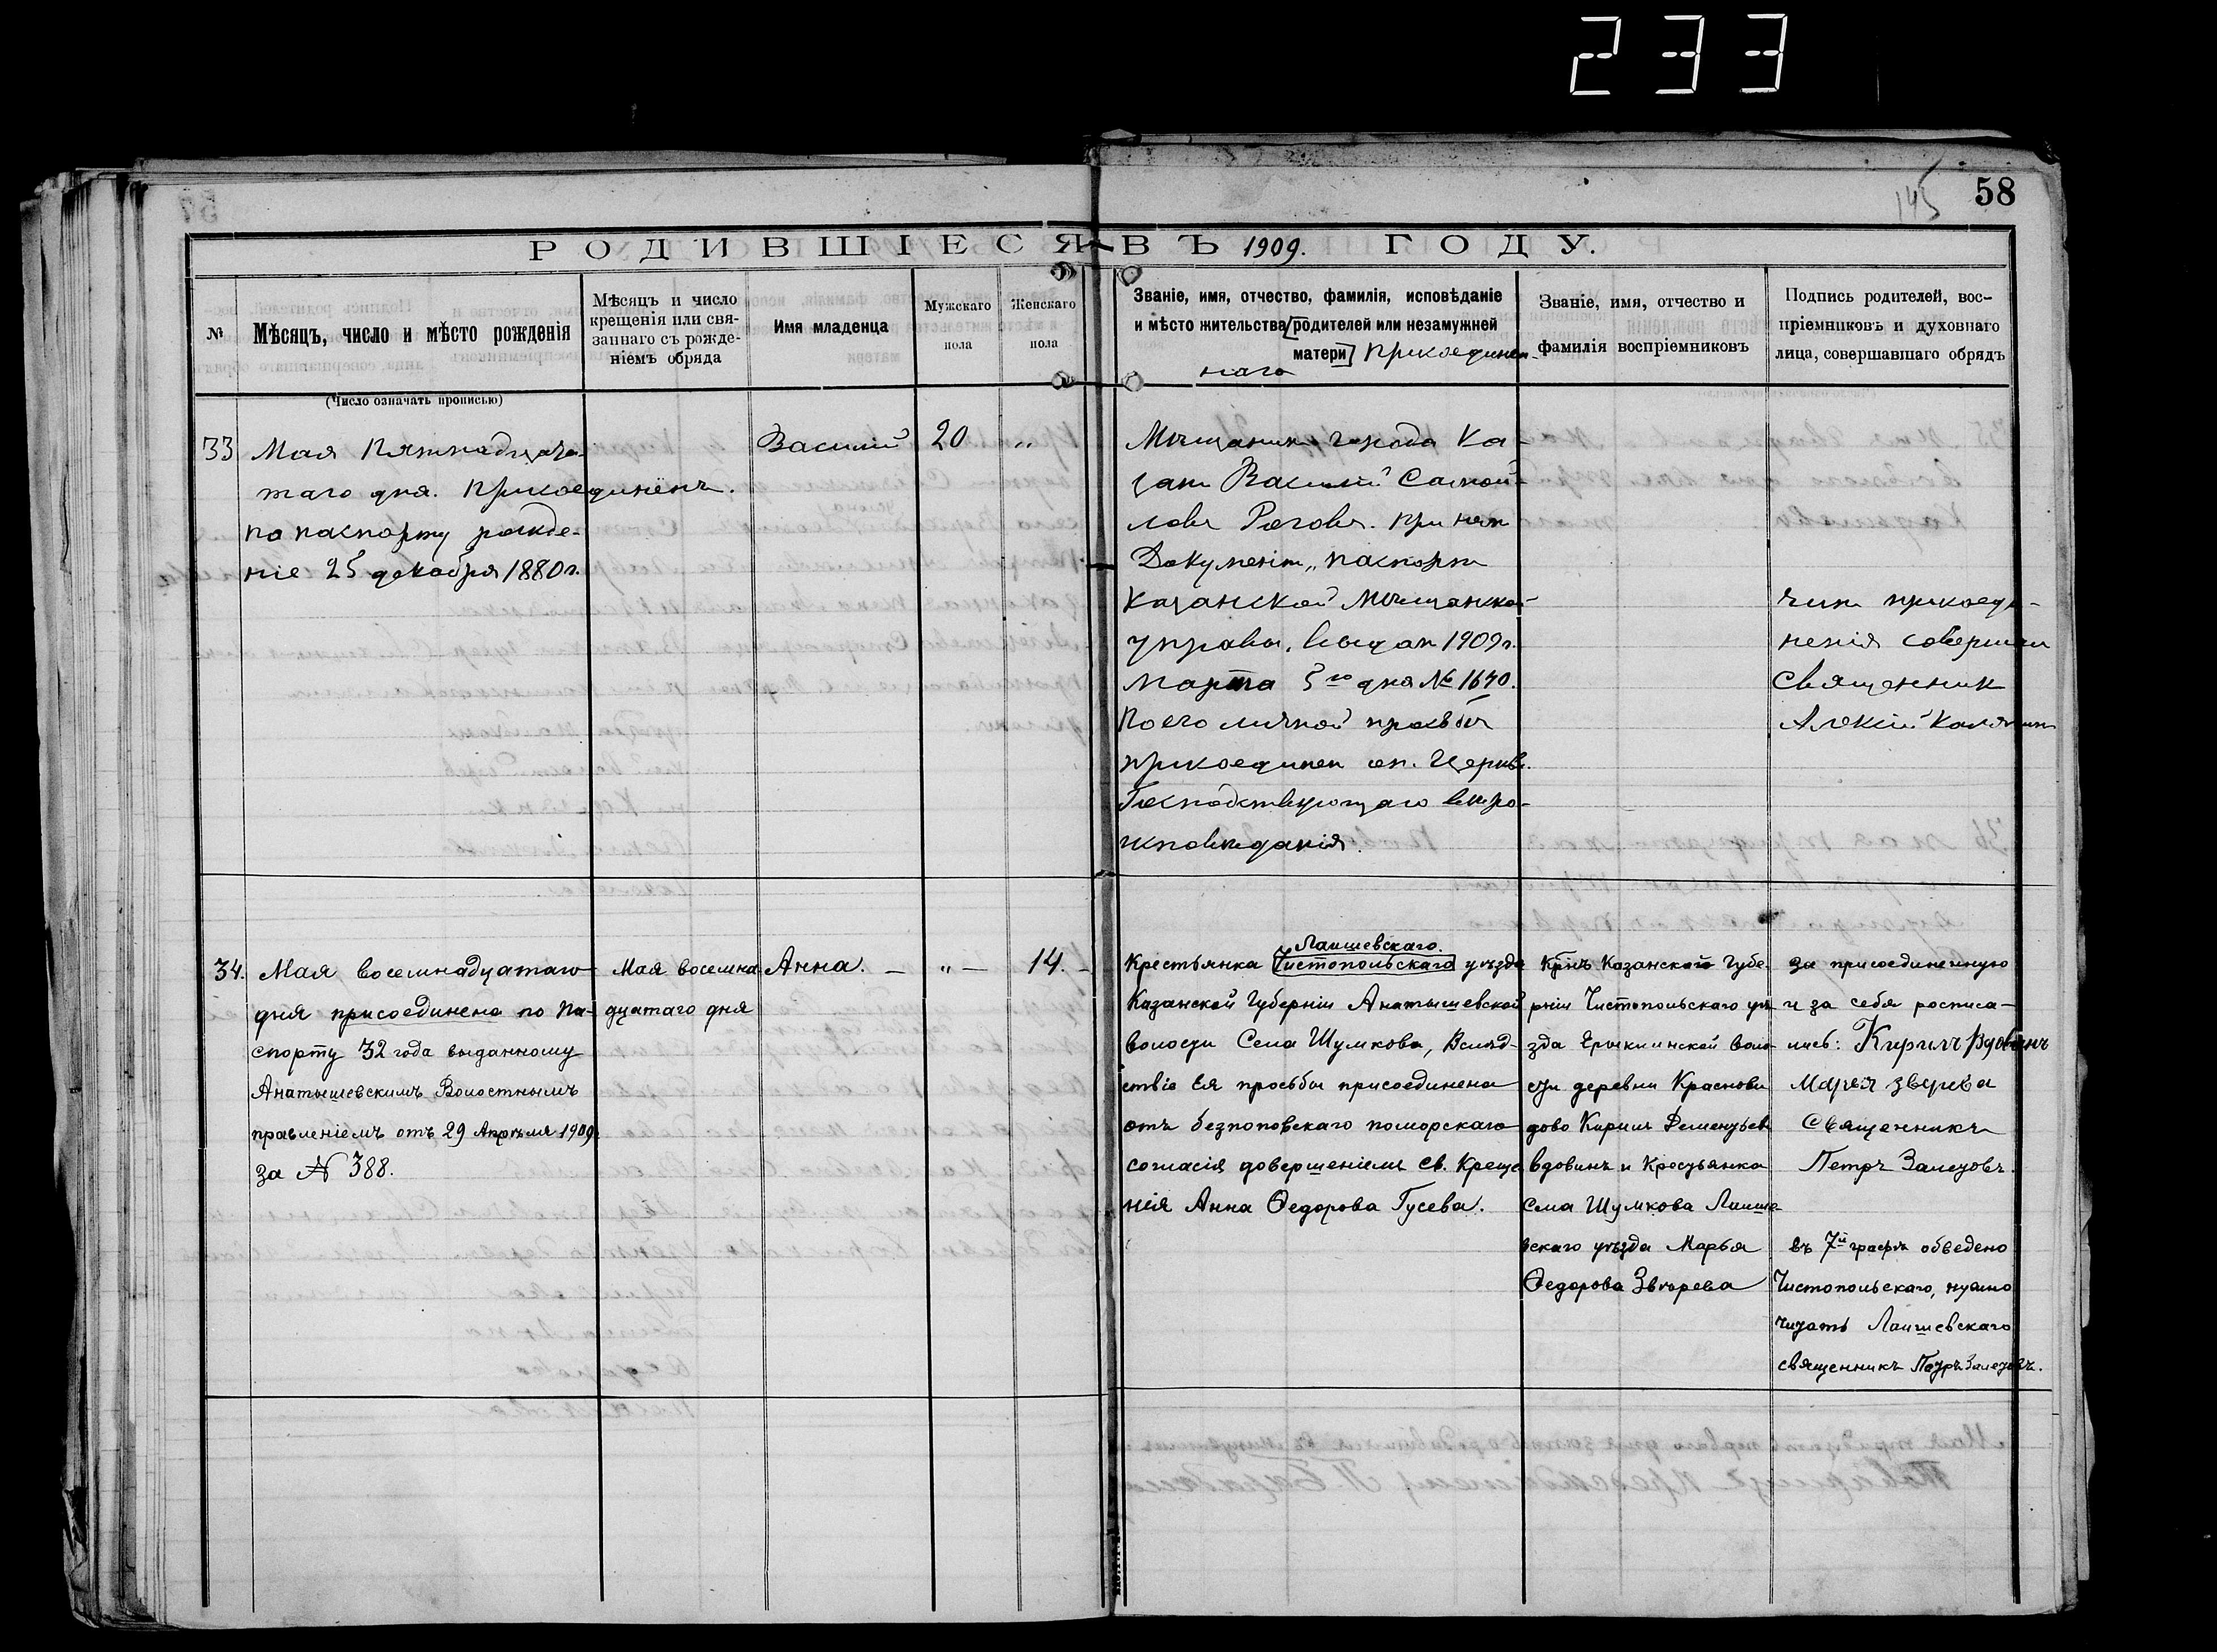 233
145
58
РОДИВШІЕСЯ ВЪ 1909. ГОДУ.
№
Мѣсяцъ, число и мѣсто рожденія
Мѣсяцъ и число
крещенія или свя-
заннаго съ рожде-
ніемъ обряда
Имя младенца
Мужскаго
пола
Женскаго
пола
Званіе, имя, отчество, фамилія, исповѣданіе
и мѣсто жительства [родителей или незамужней
матери] присоединен-
наго
Званіе, имя, отчество и
фамилія воспріемниковъ
Подпись родителей, вос-
пріемниковъ и духовнаго
лица, совершавшаго обрядъ
(Число означать прописью)
33
Мая Пятнадцата-
таго дня. присоединёнъ.
по паспорту рожде-
ніе 25 декабря 1880 г.
Василій
20
„
Мѣщанинъ города Ка-
зани Василій Самой-
ловъ Роговъ. при нем
Документ „паспорт
Казанской Мѣщанской
управы, выдан 1909 г.
Марта 5го дня № 1640.
По его личной прозьбѣ
присоединен от. Церкв.
Господствующаго вѣро-
исповѣданія.
чин присоеди-
ненія совершил
Священник
Алексій Калягин
34.
Мая восемнадцатаго
дня присоединена по па-
спорту 32 года выданному
Анатышевскимъ Волостнымъ
правленіемъ отъ 29 Апрѣля 1909 г.
за № 388.
Мая восемна-
дцатаго дня
Анна. —
„ —
14. -
Лаишевскаго.
Крестьянка Чистопольскаго уѣзда
Казанской Губерніи Анатышевской
волости Села Шумкова, Вслѣд-
ствіе Ея просьбы присоединена
отъ безпоповскаго поморскаго
согласія довершеніемъ св. Креще
нія Анна Ѳедорова Гусева.
Крнъ Казанской Губе-
рніи Чистопольскаго уѣ
зда Ерыклинской воло-
сти деревни Красново
дово Кирилъ Дементьевъ
вдовинъ и Крестьянка
села Шумкова Лаише
вскаго уѣзда Марья
Ѳедорова Звѣрева
за присоединенную
и за себя росписа-
лись: Кирилъ Вдовинъ
Марья зверева
Священникъ
Петръ Залетовъ.
въ 7й графѣ обведено
Чистопольскаго, нужно
читать Лаишевскаго
священникъ Петръ Залетовъ.